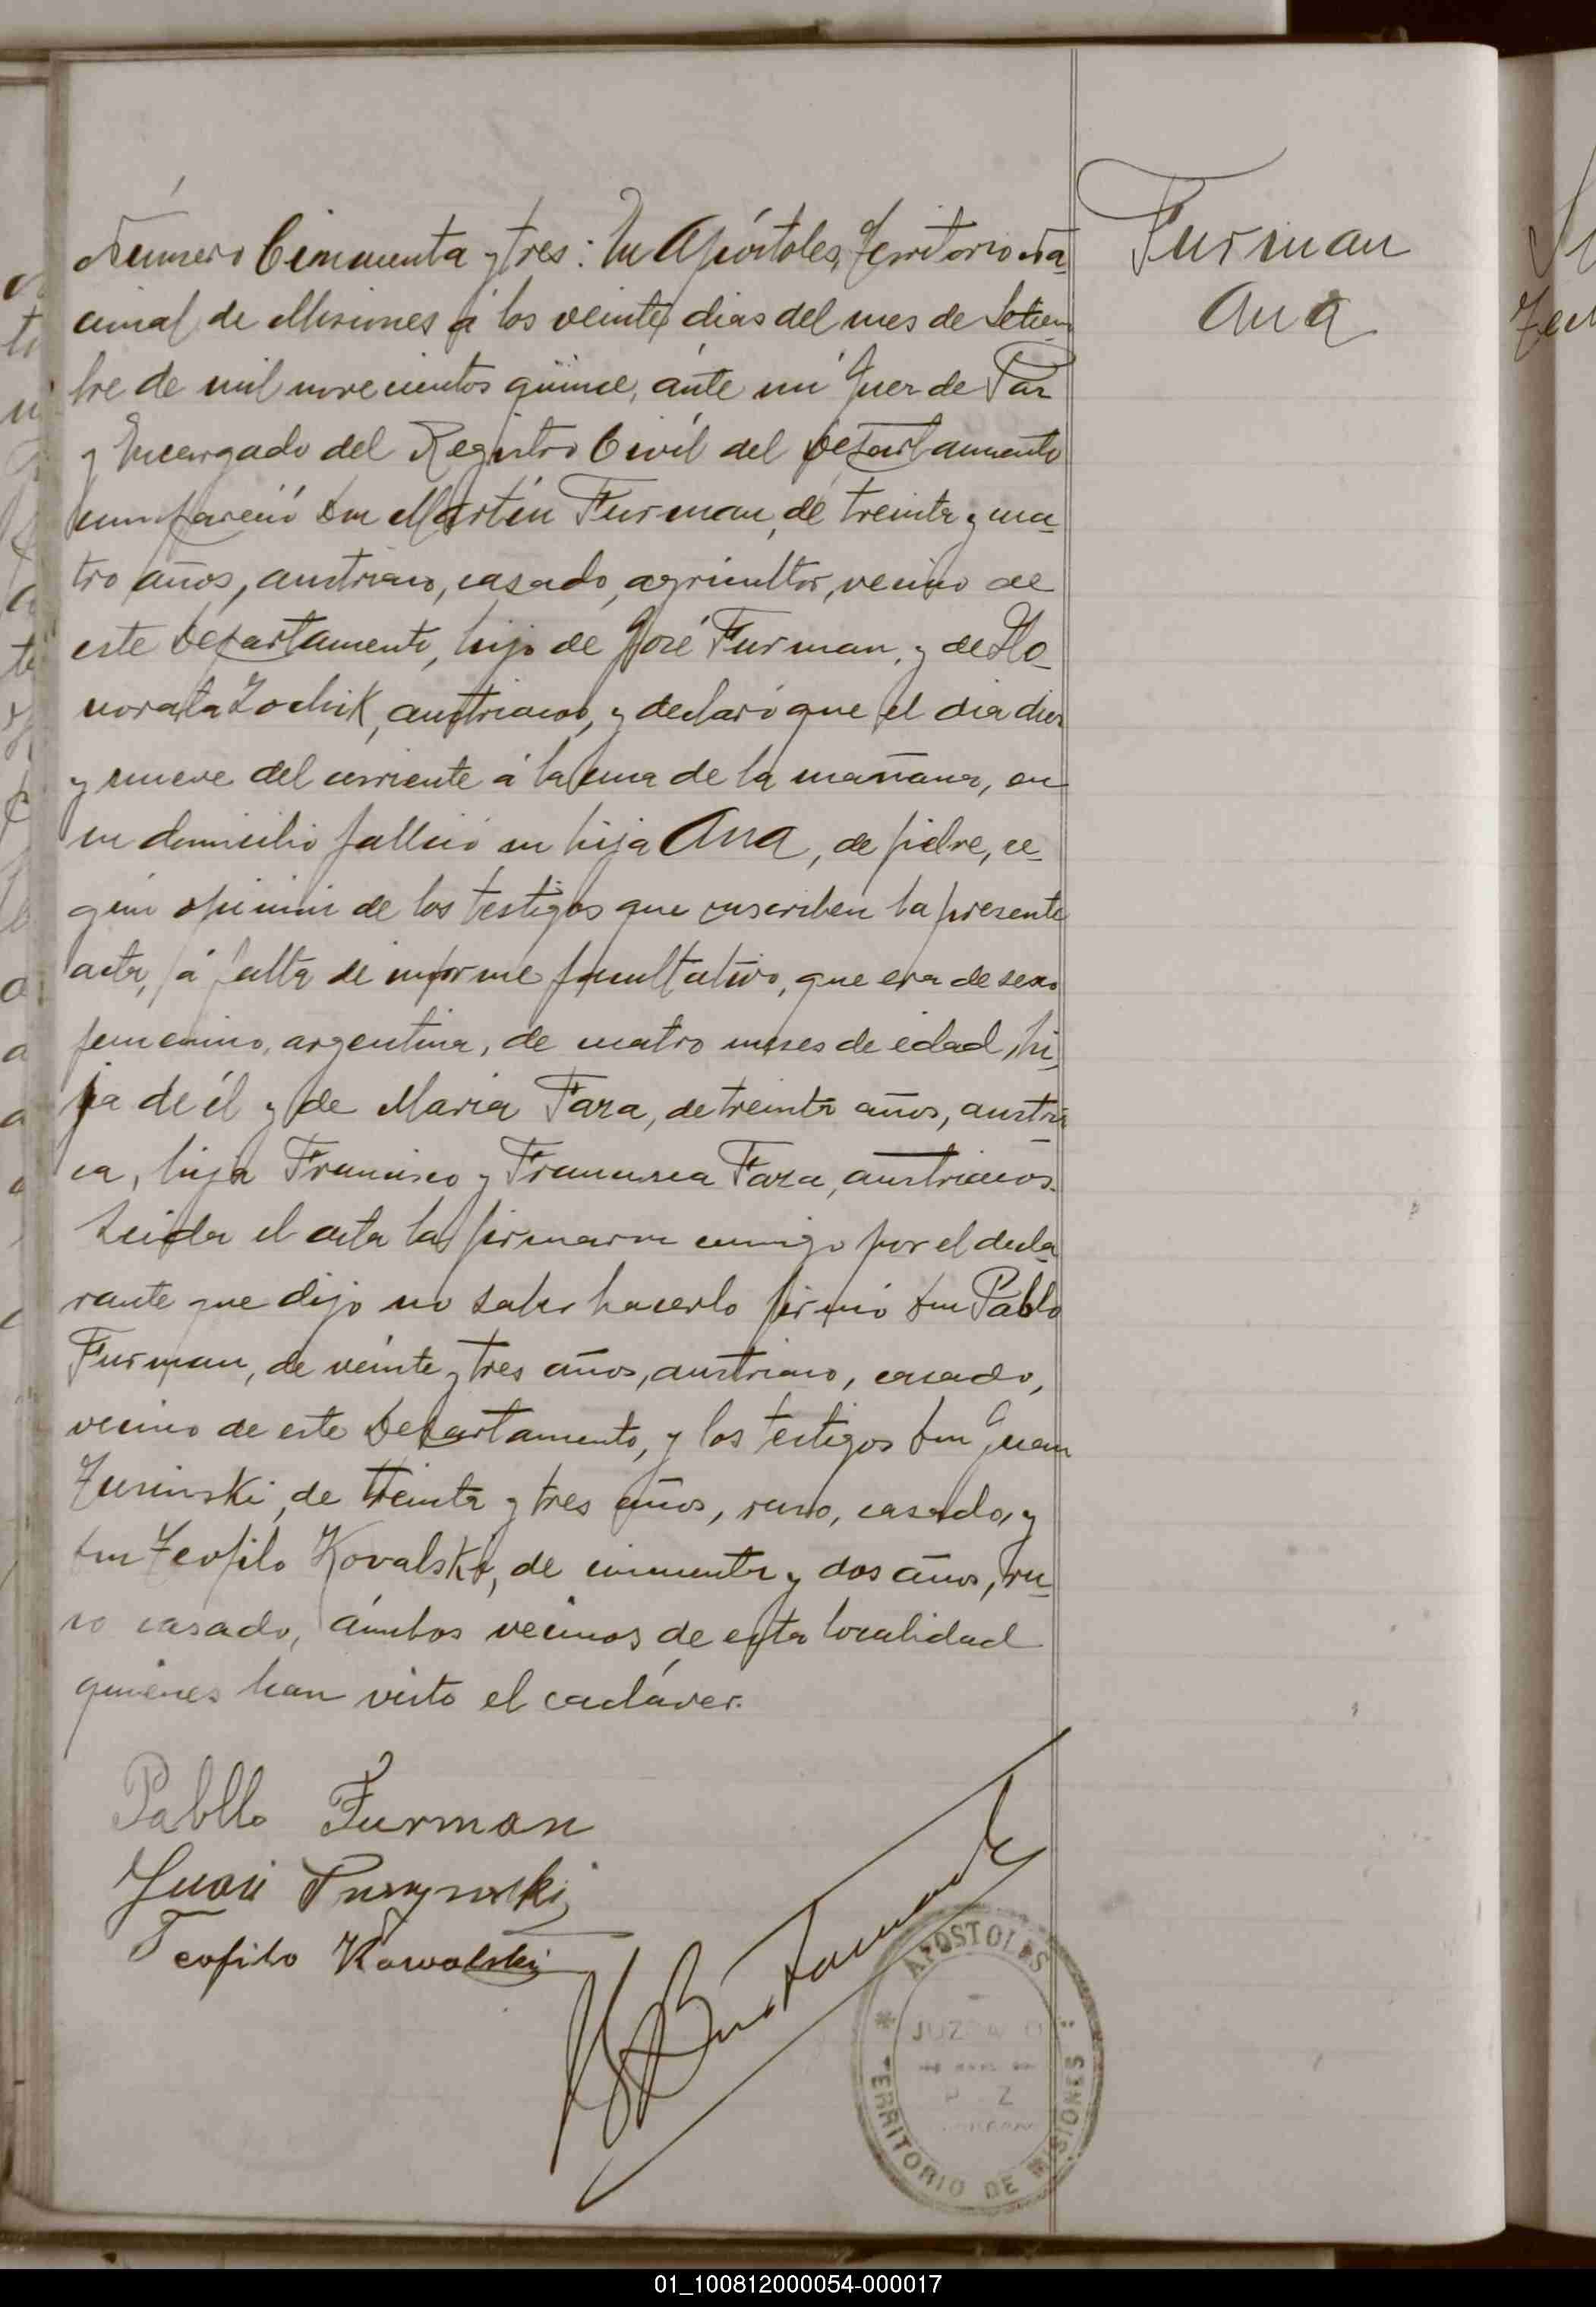 Número Cincuenta y tres: En Apóstoles, Territorio Na-
cional de Misiones á los veinte dias del mes de Setiem-
bre de mil novecientos quince, ánte mi Juez de Paz
y Encargado del Registro Civíl del Departamento
compareció Don Martín Furman, de treinta y cua-
tro años, austriaco, casado, agricultor, vecino de
este Departamento, hijo de José Furman, y de Ho-
norata Zochik, austriacos, y declaró que el dia diez
y nueve del corriente á la una de la mañana, en
su domicilio falleció su hija Ana, de fiebre, se-
gún opinión de los testigos que suscriben la presente
acta, á falta de informe facultativo, que era de sexo
femenino, argentina, de cuatro meses de edad, hi-
ja de él y de Maria Faza, de treinta años, austria
ca, hija Francisco y Francisca Faza, austriacos.
Leida el acta la firmaron conmigo por el decla-
rante que dijo no saber hacerlo firmó Don Pablo
Furman, de veinte y tres años, austriaco, casado,
vecino de este Departamento, y los testigos Don Juan
de treinta y tres años, ruso, casado, y
Don Teofilo Kovalski, de cincuenta y dos años, ru-
so casado, ámbos vecinos de esta localidad
quienes han visto el cadáver.
Pabllo Furman
Juan
Teofilo Kowalski
APOSTOLES
JUZGADO
TERRITORIO DE MISIONES
Furman
Ana
01_100812000054-000017